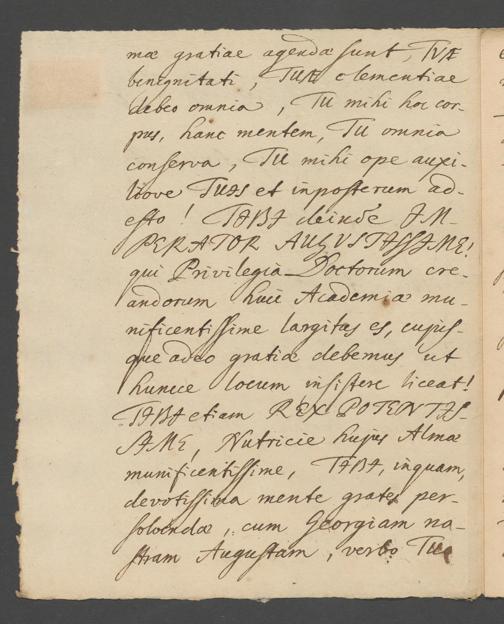 mæ gratiae agendæ sunt, TUÆ
benignitati, TUÆ clementiae
debeo omnia, TU mihi hoc cor-
pus, hanc mentem, TU omnia
conserva, TU mihi ope auxi-
liove TUAS et inposterum ad-
esto! TIBI deinde IM-
PERATOR AUGUSTISSIME!
qui Privilegia Doctorum cre-
andorum huic Academiæ mu-
nificentissime largitus es, cujus-
que adeo gratiæ debemus ut
huncce locum insistere liceat!
TIBI etiam REX POTENTIS-
SIME, Nutricie hujus Almæ
munificentissime, TIBI, inquam,
devotissima mente grates per-
solvendæ, cum Georgiam no-
stram Augustam, verbo